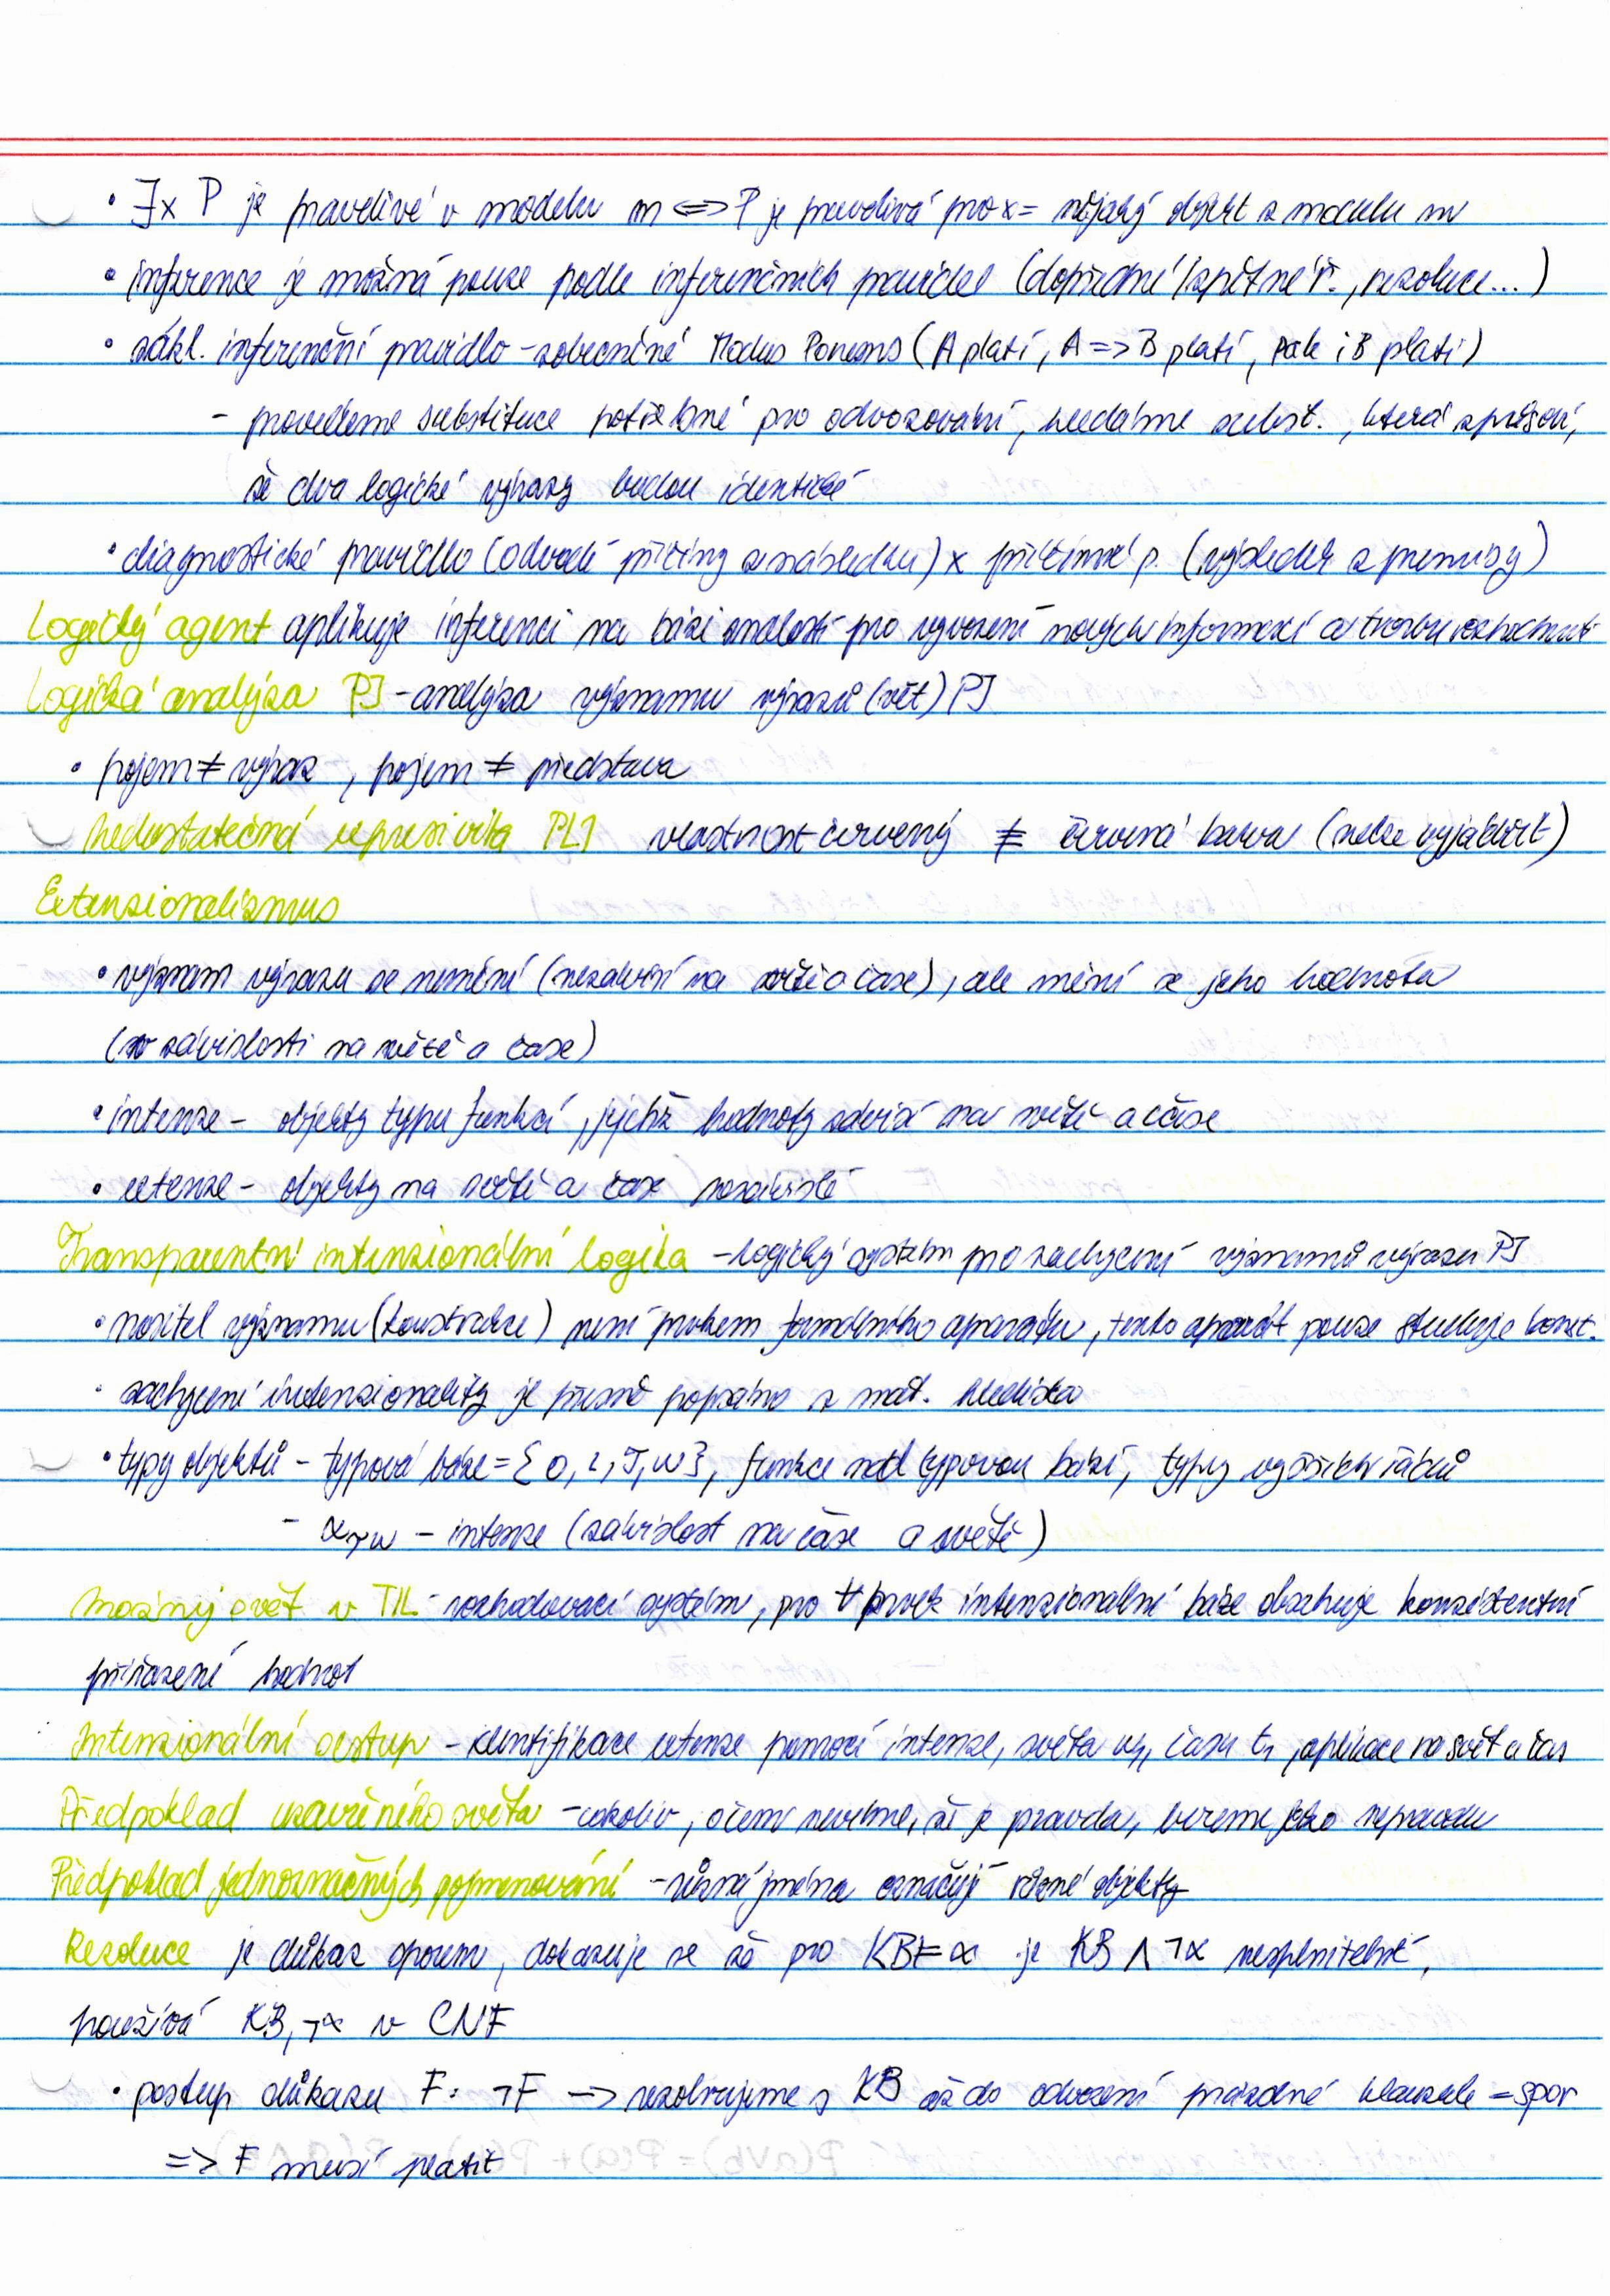 • ∃x P je pravdivé v modelu m <=> P je pravdivá pro x = nějaký objekt z modelu m
• inference je možná pouze podle inferenčních pravidel (dopředné/zpětné ř., rezoluce...)
• zákl. inferenční pravidlo - zobecněné Modus Ponens (A platí, A => B platí, pak i B platí)
- provedeme substituce potřebné pro odvozování, hledáme subst., která způsobí,
že dva logické výrazy budou identické
• diagnostické pravidlo (odvodí příčiny z následku) x příčinné p. (výsledek z premisy)
Logický agent aplikuje inferenci na bázi znalostí pro vyvození nových informací a tvorbu rozhodnutí
Logická analýza PJ - analýza významu výrazů (vět) PJ
• pojem ≠ výraz, pojem ≠ představa
Nedostatečná expresivita PL1 vlastnost červený ≠ červená barva (nelze vyjádřit)
Extenzionalizmus
• význam výrazu se nemění (nezávisí na světě a čase), ale mění se jeho hodnota
(v závislosti na světě a čase)
• intenze - objekty typu funkcí, jejichž hodnoty závisí na světě a čase
• extenze - objekty na světě a čase nezávislé
Transparentní intenzionální logika - logický systém pro zachycení významu výrazu PJ
• nositel významu (konstrukce) není prvkem formálního aparátu, tento aparát pouze studuje konst.
• zachycení intenzionality je přesně popsáno z mat. hlediska
• typy objektů - typová báze = {ο, ι, τ, ω}, funkce nad typovou bází, typy vyšších řádů
- ατω - intenze (závislost na čase a světě)
Možný svět v TIL - rozhodovací systém, pro ∀ prvek intenzionální báze obsahuje konzistentní
přiřazení hodnot
Intenzionální sestup - identifikace extenze pomocí intenze, světa w1, času t1, aplikace na svět a čas
Předpoklad uzavřeného světa - cokoliv, o čem nevíme, že je pravda, bereme jako nepravdu
Předpoklad jednoznačných pojmenování - různá jména označují různé objekty
Rezoluce je důkaz sporem, dokazuje se že pro KB ⊨ α je KB ∧ ¬α nesplnitelné,
používá KB, ¬α v CNF
• postup důkazu F: ¬F -> rezolvujeme s KB až do odvození prázdné klauzule = spor
=> F musí platit